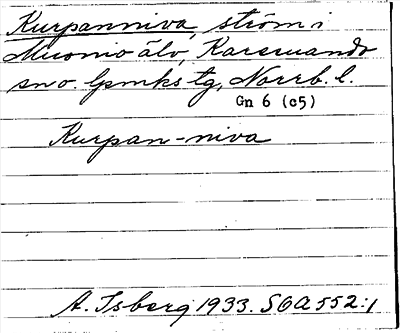 Kurpanniva, ström i
Muonio älv, Karesuando
sn o. lpmks tg, Norrb. l.
Gn 6 (c5)
Kurpan-niva
A. Isberg 1933. S6A552:1